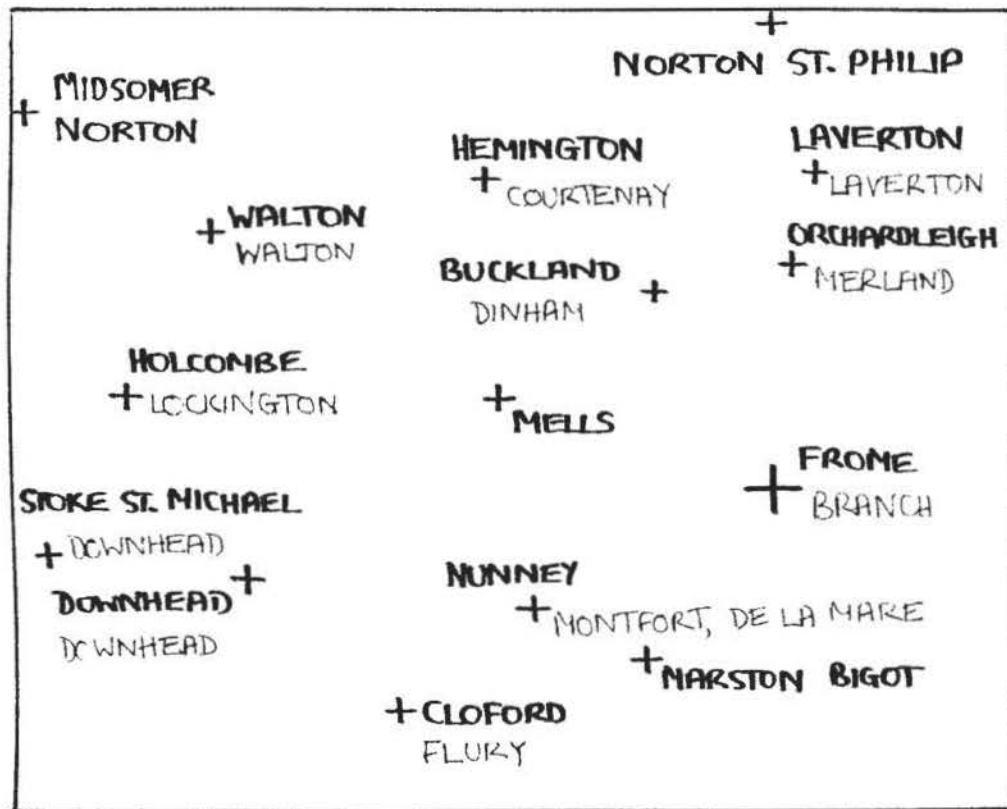 NORTON ST. PHILIP
MIDSOMER
NORTON
HEMINGTON
COURTENAY
LAVERTON
LAVERTON
WALTON
WALTON
ORCHARDLEIGH
MERLAND
BUCKLAND
DINHAM
HOLCOMBE
LOCKINGTON
MELLS
FROME
BRANCH
STOKE ST. MICHAEL
DOWNHEAD
DOWNHEAD
DOWNHEAD
NUNNEY
MONTFORT, DE LA MARE
MARSTON BIGOT
CLOFORD
FLURY